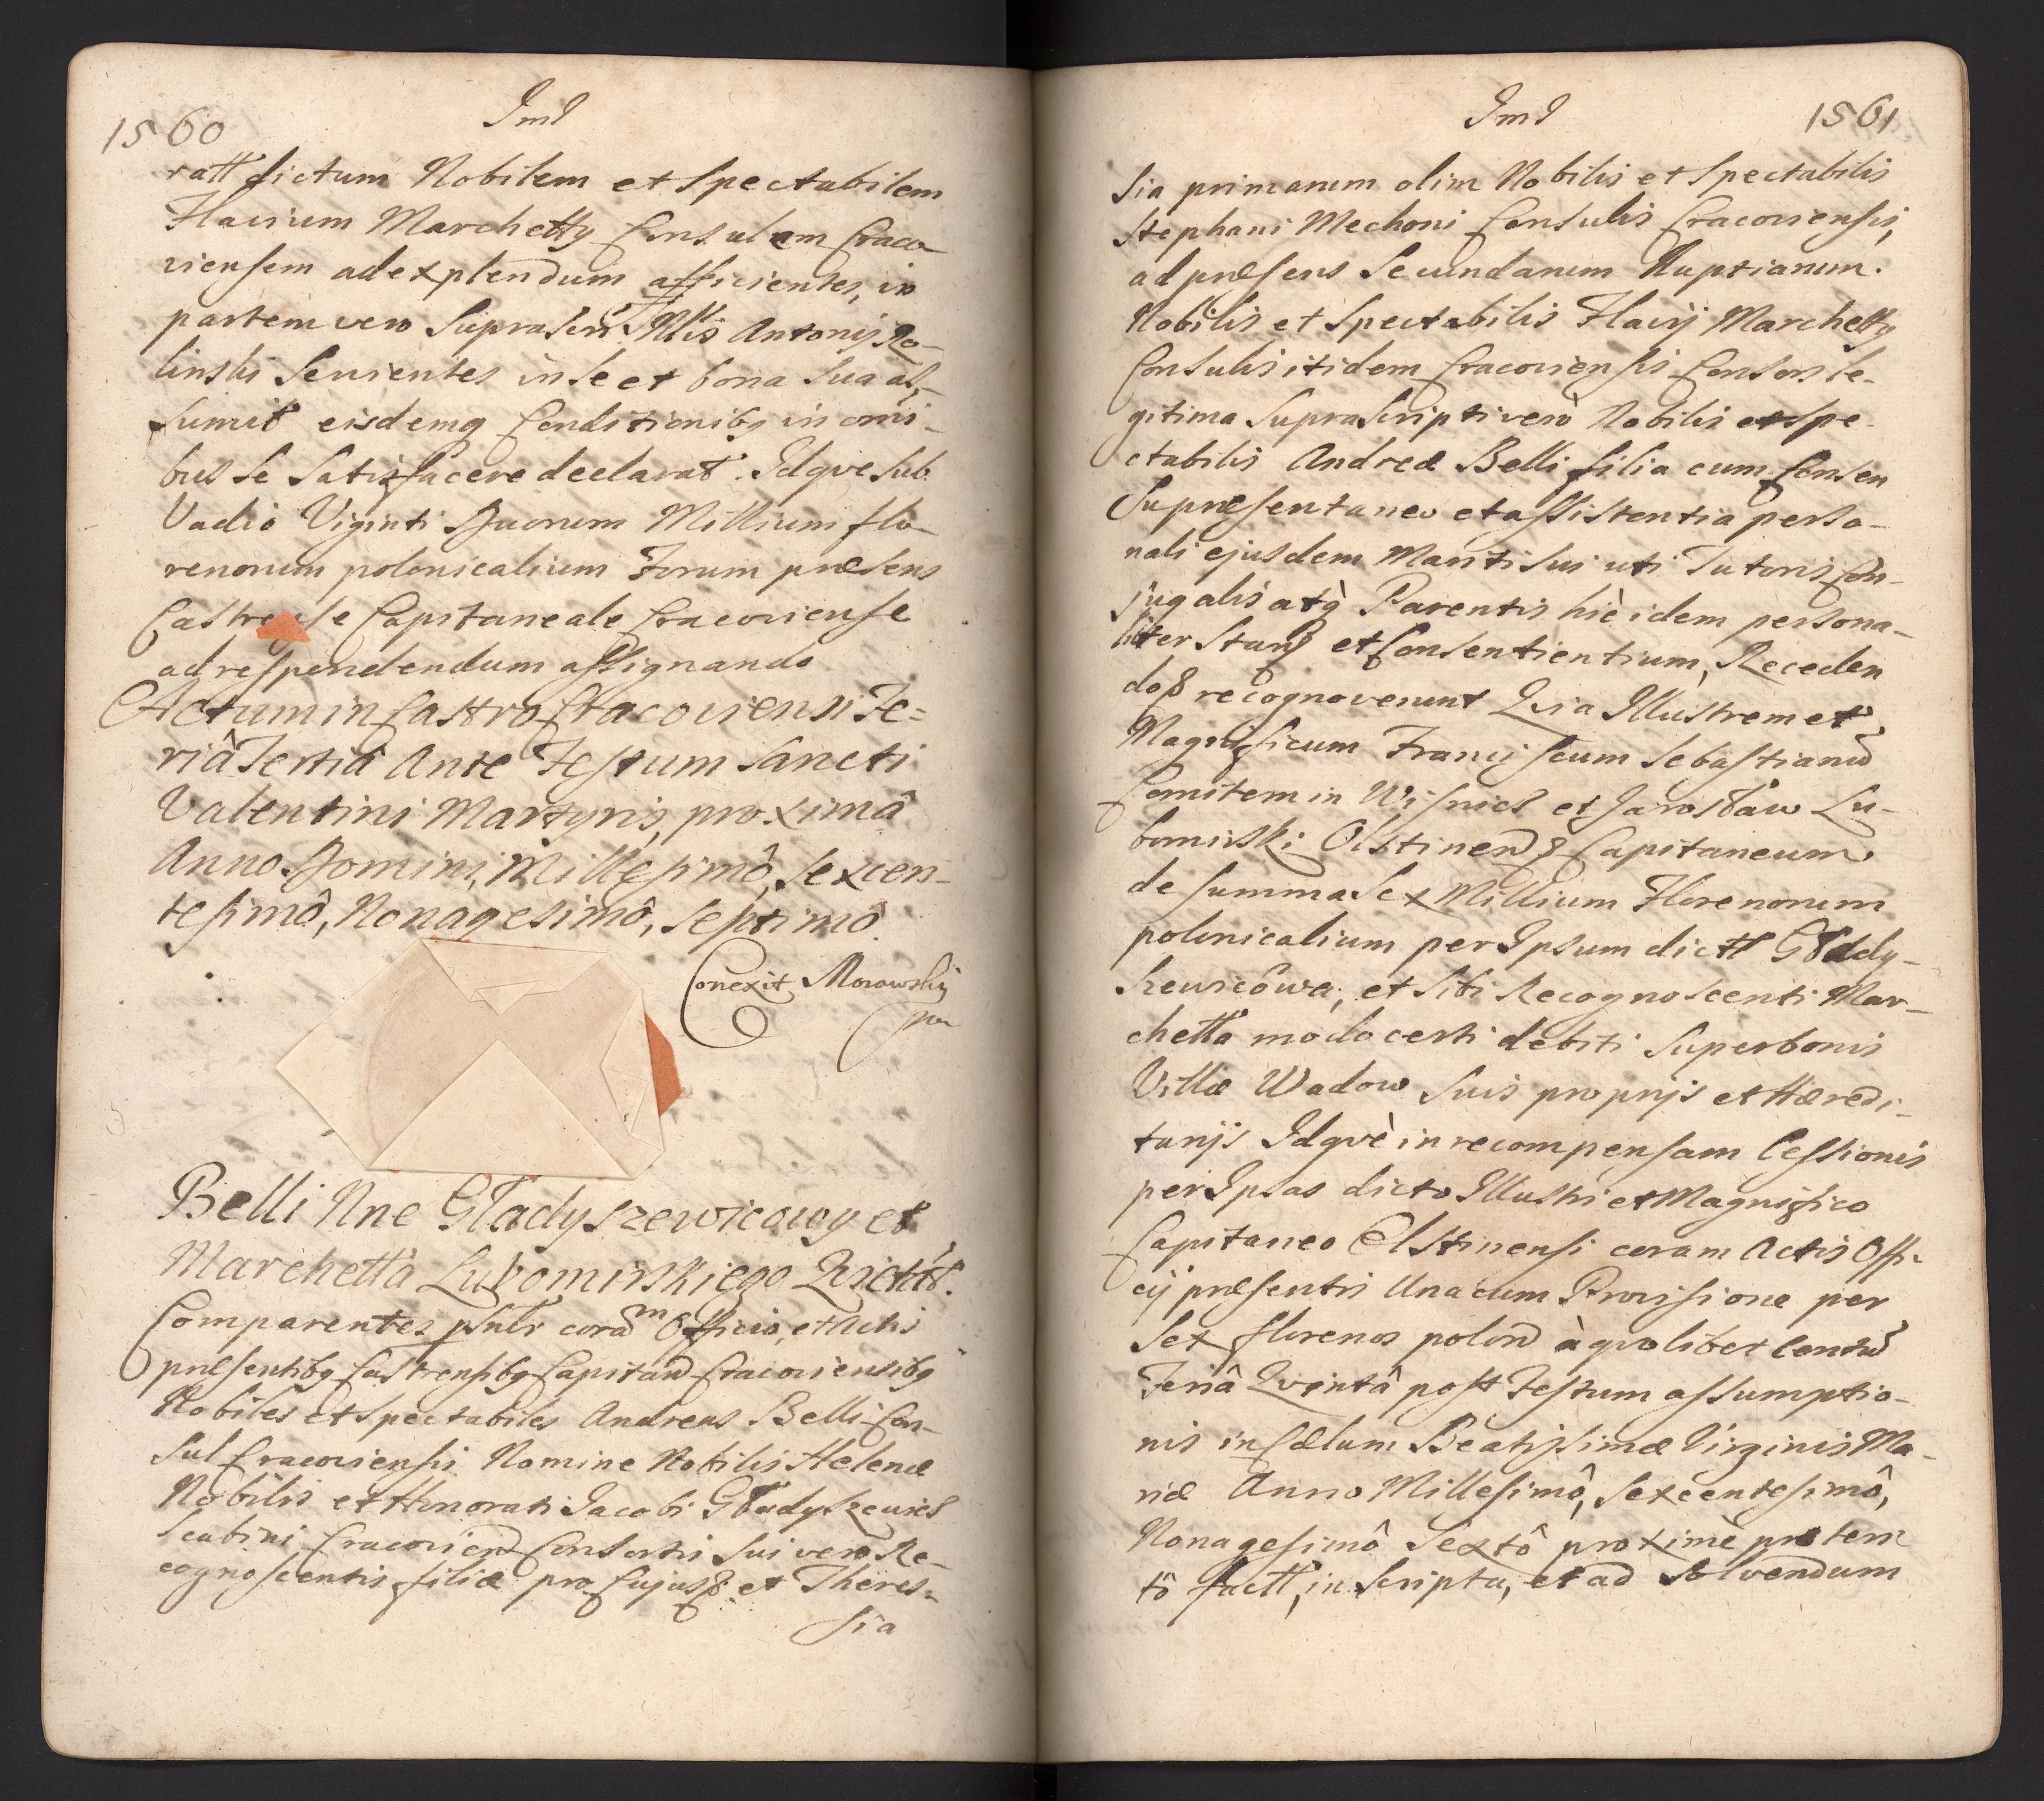 1560
Imt
ratt dictum Nobilem et Spectabilem
Flavium Marchetty Consulem Craco
viensem ad explendum afficientes, in
partem vero suprascri Antonij Ro-
linski servientes in se et bona sua as-
sumit eisdemq Conditionibq in omni-
bus se satisfacere declarat. Idqve sub
Vadio Viginti Duorum Millium flo-
renorum polonicalium Forum præsens
Castrense Capitaneale Cracoviense
ad respondendum assignando
Actum in Castro Cracoviensi Fe=
riâ Tertiâ Ante Festum Sancti
Valentini Martyris, proximâ
Anno Domini, Millesimô, Sexcen-
tesimô, Nonagesimô, Septimô.
Conexit Morawskij
Belli Nne Gładyszewicowy et
Marchetta Lubomirskiego Qviett.
Comparentes psnlr coram Officio, et Actis
præsentibq Castrensibq Capitan Cracoviensibq
Nobiles et Spectabiles Andreas Belli Con-
sul Cracoviensis Nomine Nobilis Helenæ
Nobilis et Honorati Jacobi Gładyszewicz
Scabini Cracovien Consortis sui vero Re-
cognoscentis filiæ pro Cujus et Theres-
sia
Imt
1561
sia primarum olim Nobilis et Spectabilis
Stephani Mechoni Consulis Cracoviensis,
ad præsens Secundarum Nuptiarum.
Nobilis et Spectabilis Flavij Marchetty
Consulis itidem Cracoviensis Consors le-
gitima Suprascripti verò Nobilis et Spe-
ctabilis Andreæ Belli filia cum Consen
su præsentaneo et assistentia perso-
nali ejusdem Mariti sui uti Tutoris Con-
jugalis atq Parentis hîc idem persona-
liter stan et Consentientium, Receden
do recognoverunt Qvia Illustrem et
Magnificum Franciscum Sebastianu
Comitem in Wisnicz et Jarosław Lu-
bomirski Olstinen Capitaneum
de summa Sex Millium Florenorum
polonicalium per Ipsum dictt Głady-
szewicowa, et sibi Recognoscenti Mar-
chetta modo certi debiti super bonis
Villæ Wadow suis proprijs et Hæredi-
tarijs Idqvè in recompensam Cessionis
per Ipsas dicto Illustri et Magnifico
Capitaneo Olstinensi coram Actis Offi-
cij præsentis Unacum Provisione per
Sex florenos polon à qvolibet Centu
Feriâ Qvintâ post Festum assumptio-
nis in Cælum Beatissimæ Virginis Ma-
riæ Anno Millesimô, Sexcentesimô,
Nonagesimô Sextô proximè præteri
tô factt, inscripta, et ad solvendum